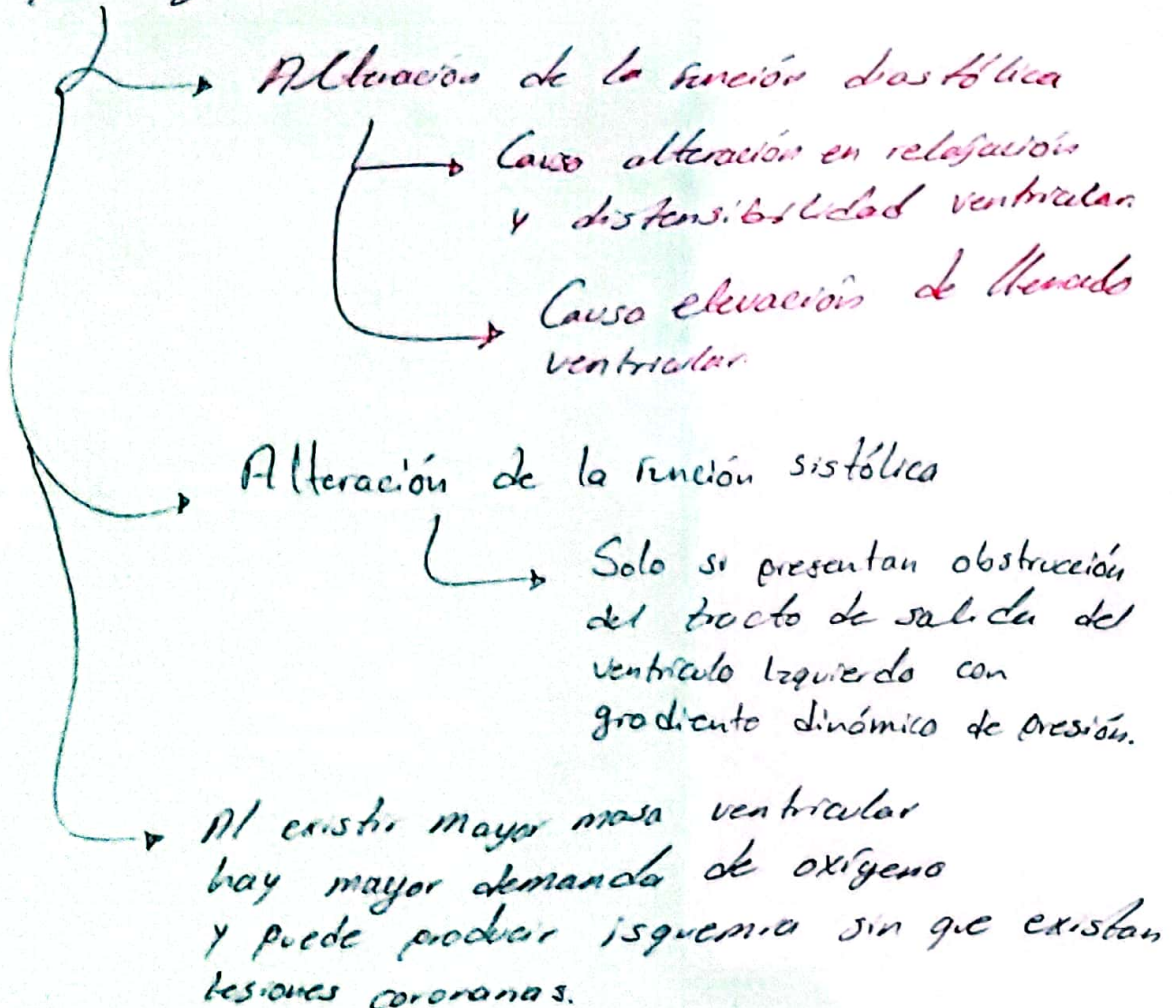 Alteración de la función diastólica
Causa alteración en relajación
y distensibilidad ventricular.
Causa elevación de llenado
ventricular.
Alteración de la función sistólica
Solo si presentan obstrucción
del tracto de salida del
ventrículo Izquierdo con
gradiente dinámico de presión.
Al existir mayor masa ventricular
hay mayor demanda de oxígeno
y puede producir isquemia sin que existan
lesiones coronarias.